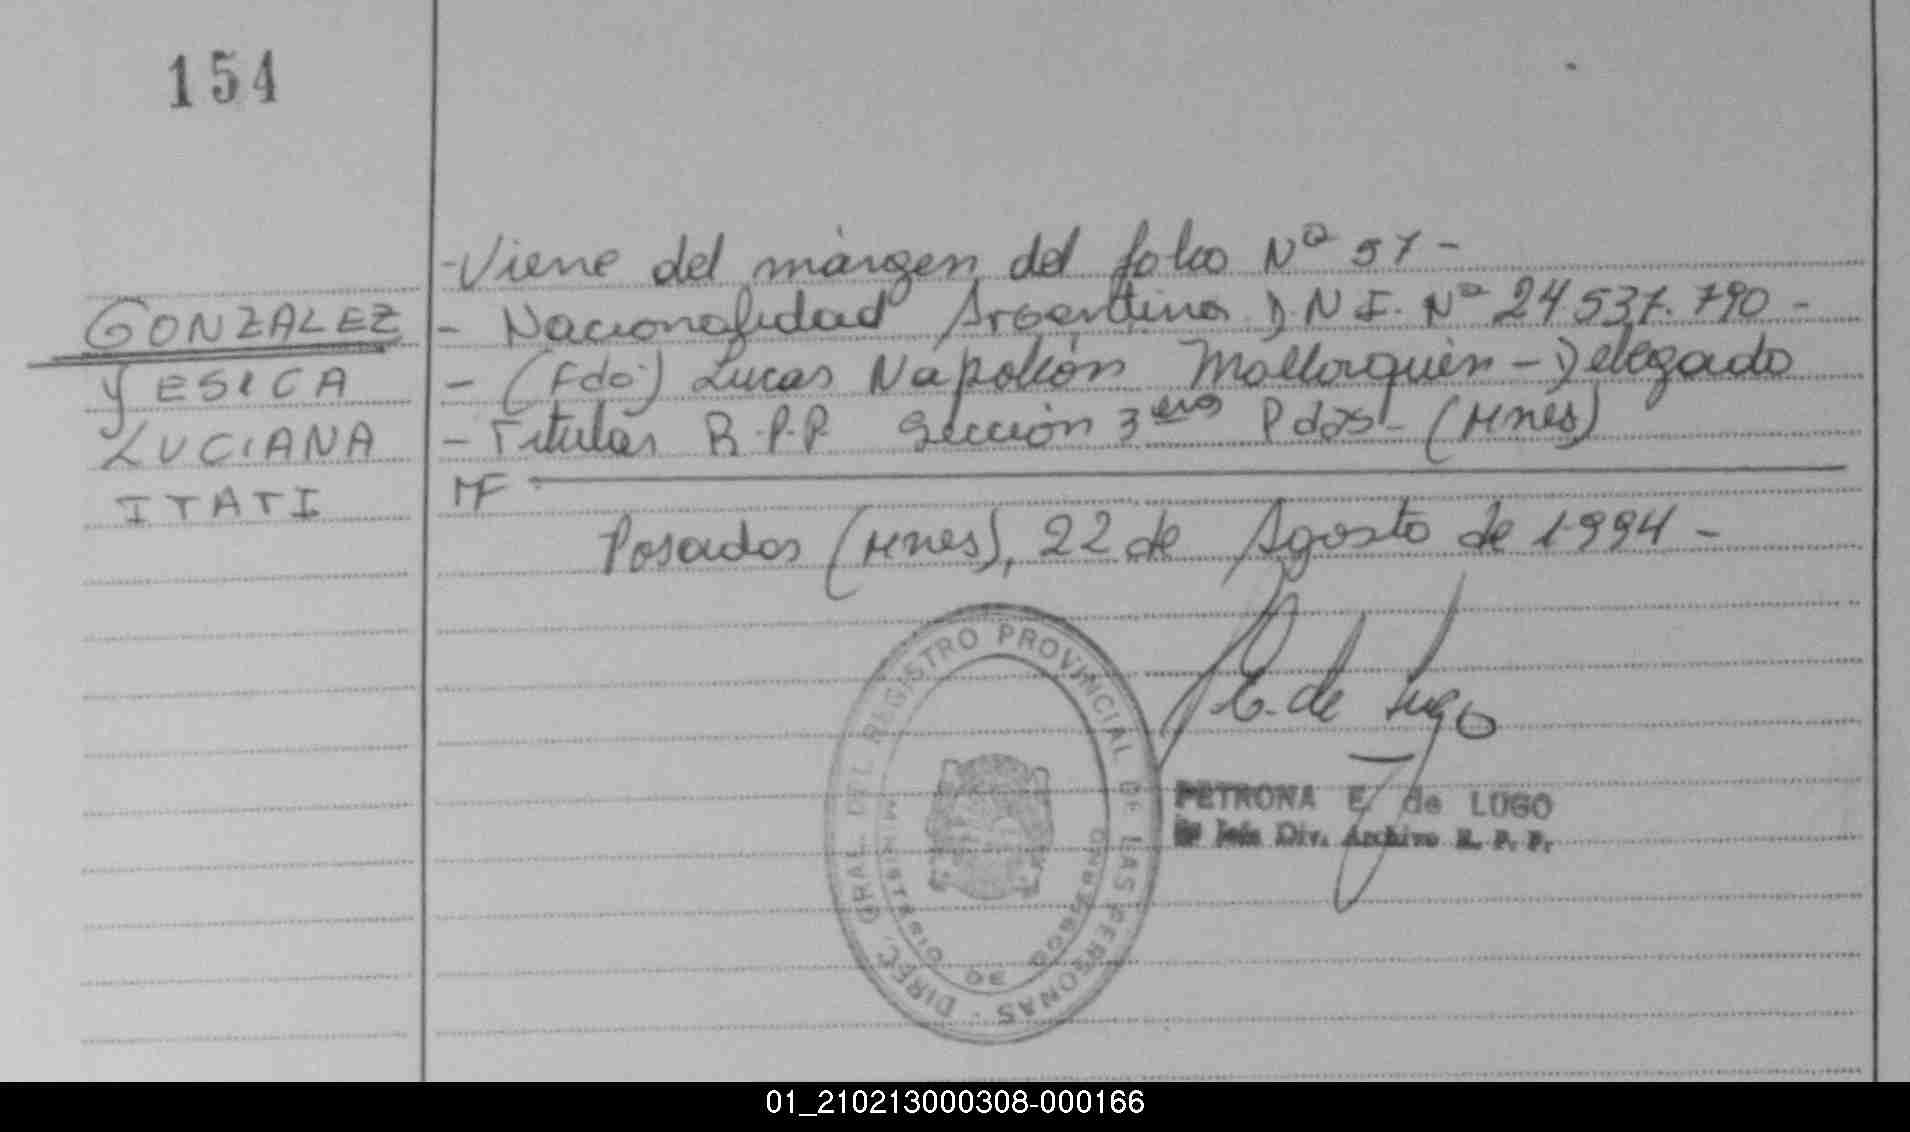 154
-Viene del màrgen del folio Nº 57-
GONZALEZ
- Nacionalidad Argentina D.N.I. Nº 24.537.790-
YESICA
- (Fdo:) Lucas Napoleón Mallorquin - Delegado
LUCIANA
- Titular R.P.P. Sección 3era Pdas- (Mnes)
ITATI
MF
Posadas (Mnes), 22 de Agosto de 1994-
E. de Lugo
PETRONA E. de LUGO
Jefe Div. Archivo R. P. P.
DIREC. GRAL. DEL REGISTRO PROVINCIAL DE LAS PERSONAS
MINISTERIO DE GOBIERNO
01_210213000308-000166